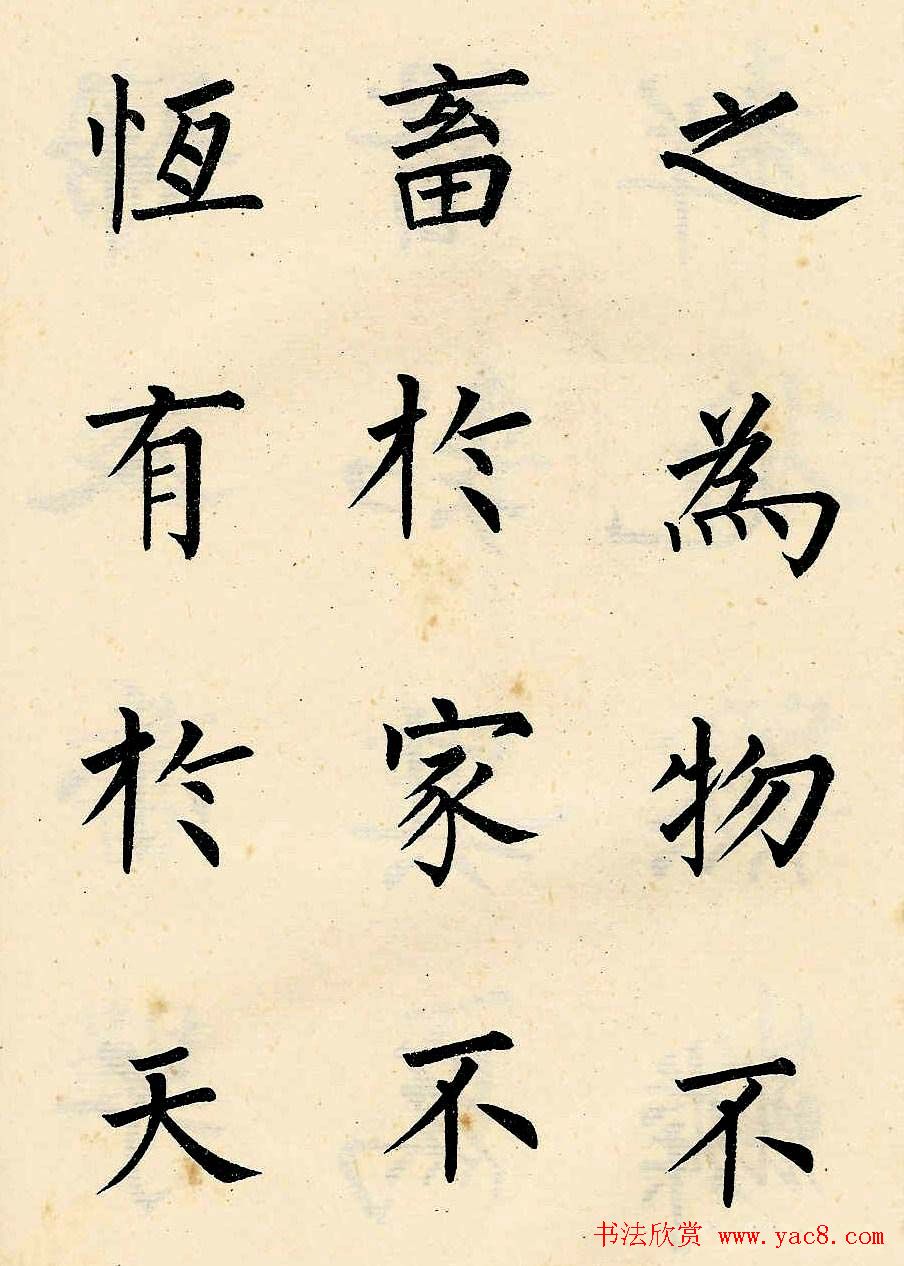 之為物不
畜於家不
恆有於天
书法欣赏 www.yac8.com